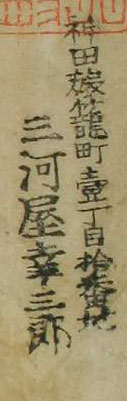 神田旅籠町壹丁目拾六番地
三河屋幸三郎